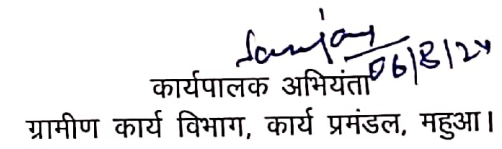 Sanjay
06/8/24
कार्यपालक अभियंता
ग्रामीण कार्य विभाग, कार्य प्रमंडल, महुआ।